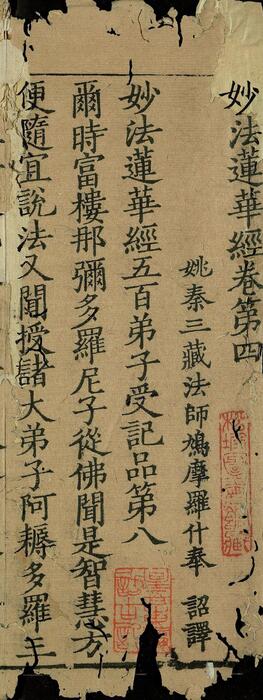 妙法蓮華經卷第四
姚秦三藏法師鳩摩羅什奉 詔譯
妙法蓮華經五百弟子受記品第八
爾時富樓那彌多羅尼子從佛聞是智慧方
便隨宜說法又聞授諸大弟子阿耨多羅三